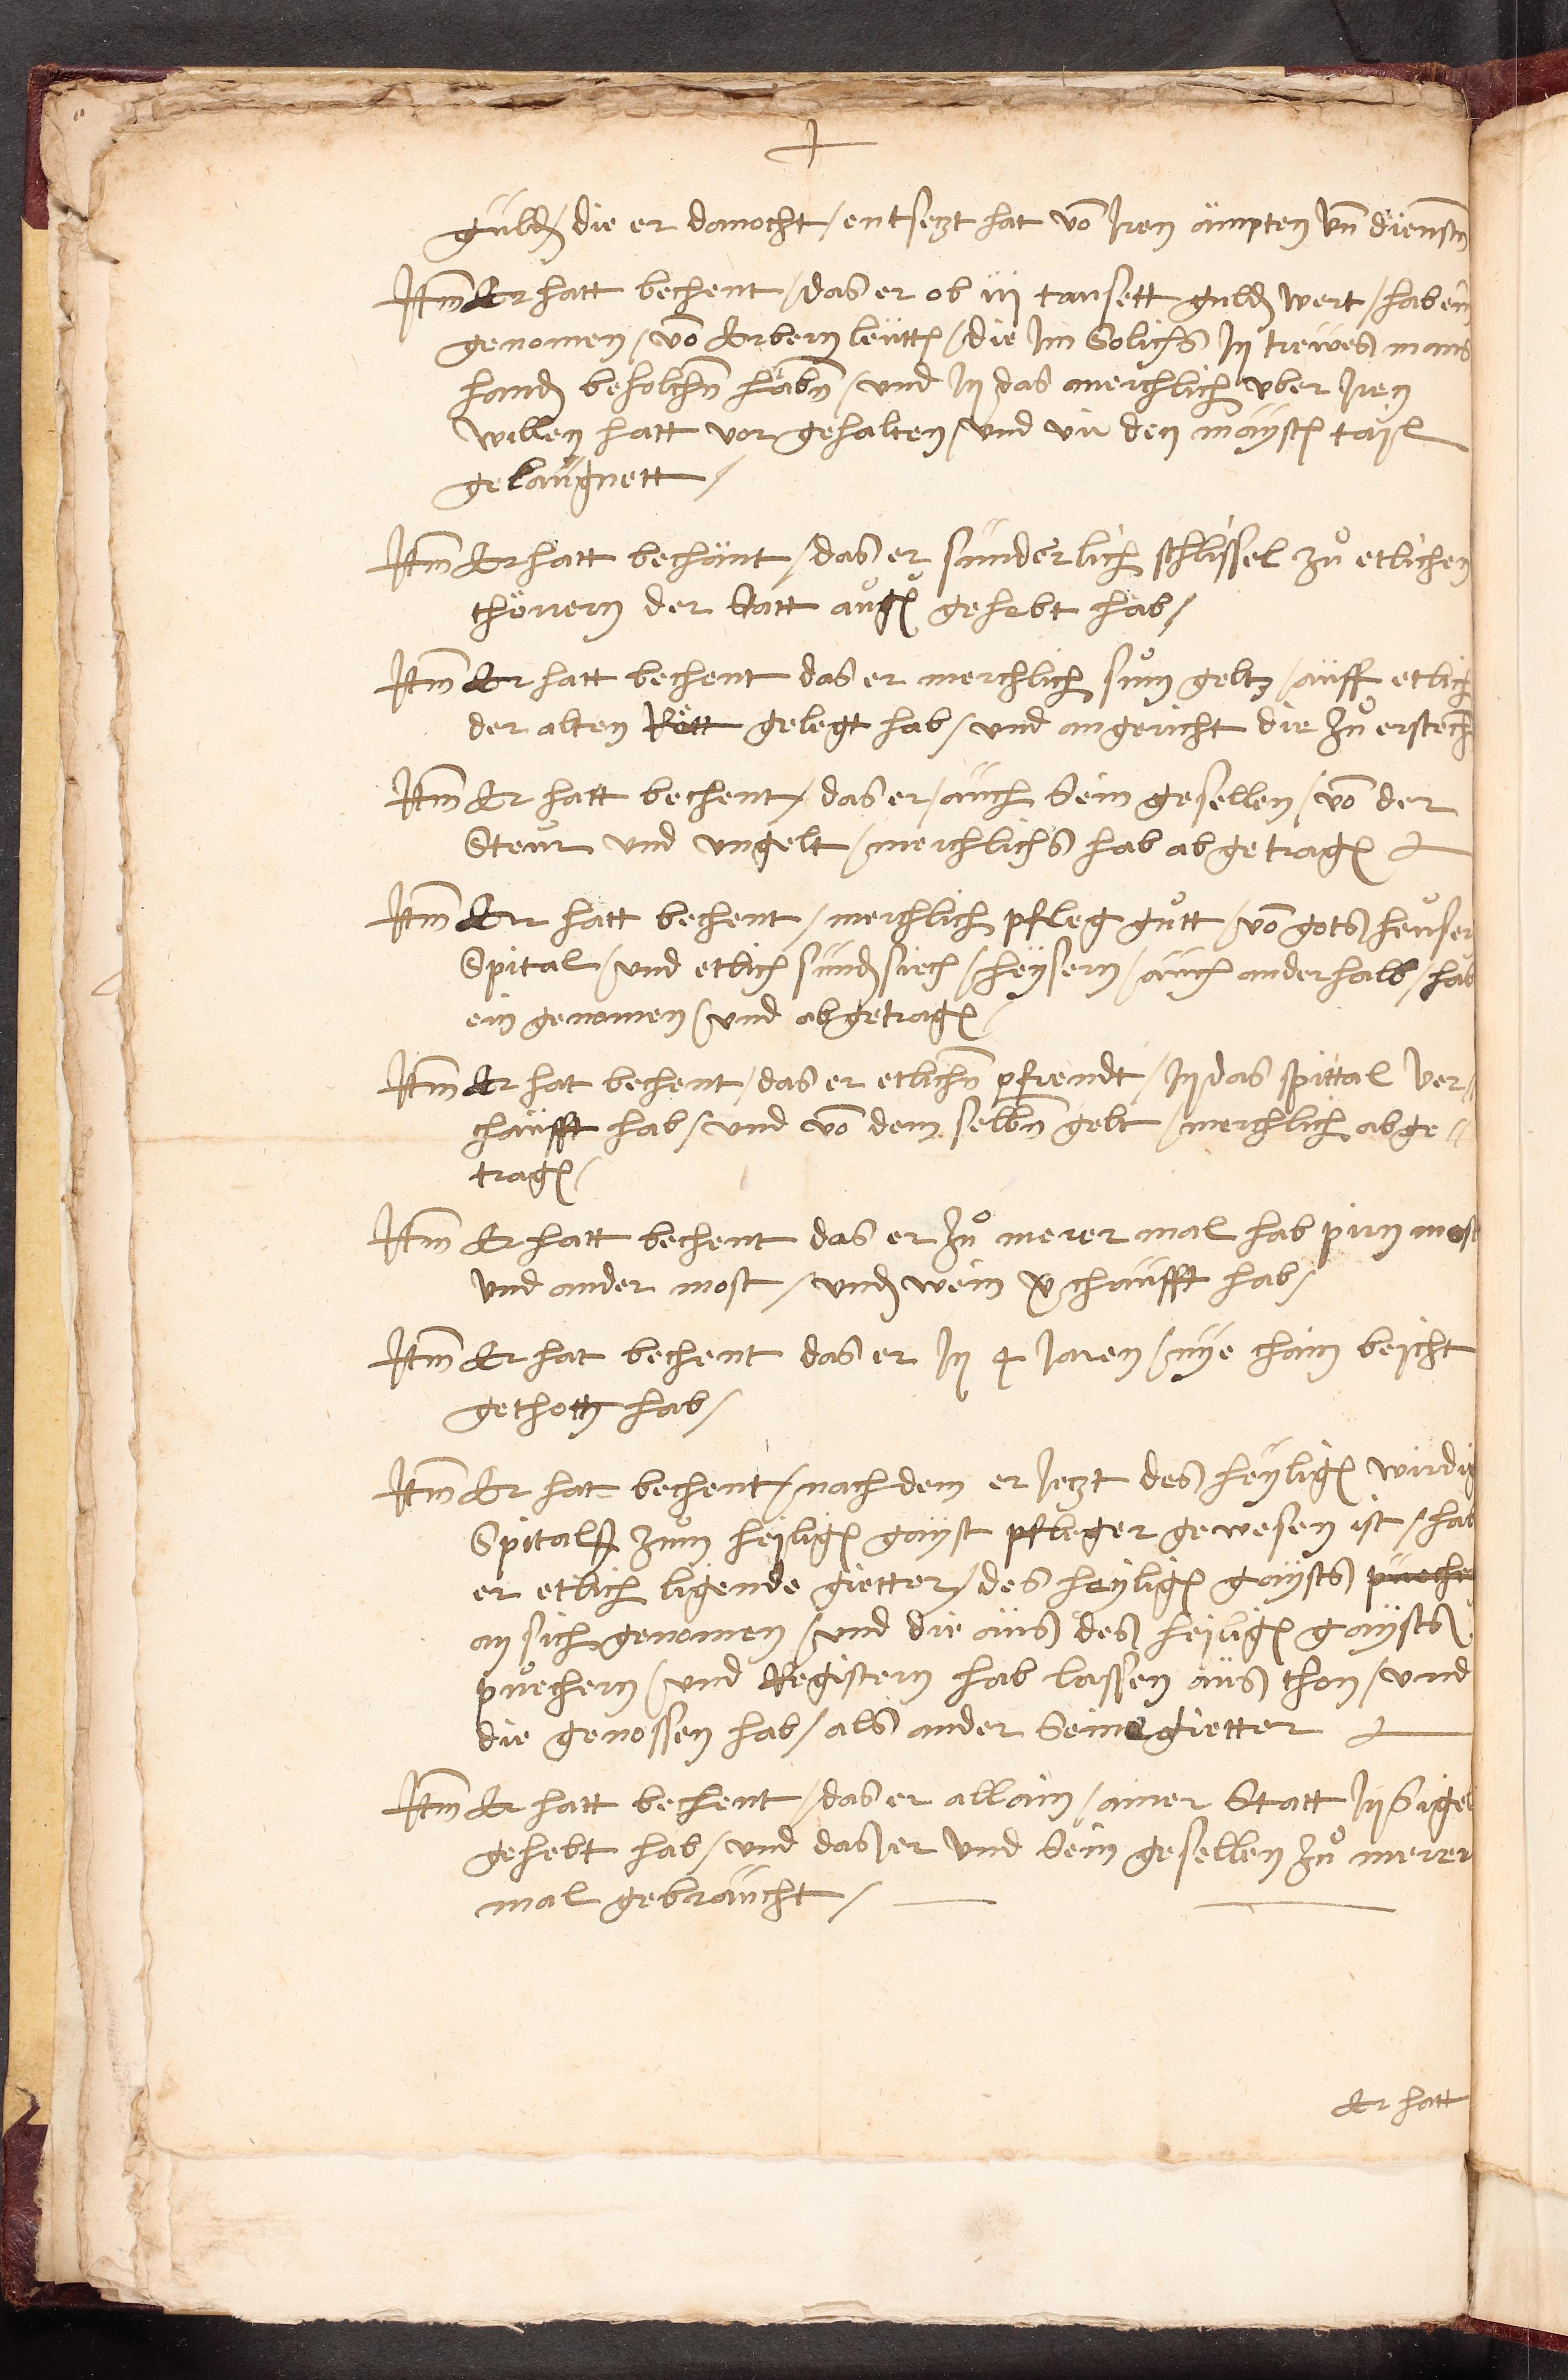 guld(e)n / die er danocht / entsetzt hat võ Iren ämpten vñ dienstñ
Itm Er hatt bechent / das er ob iij tausett guld(e)n wert / hab ein
genomen / võ Erbern leütt(e)n / die Im Solichs In trewes mans
hand(e)n befolchñ habñ / und In das merchlich vber Iren
willen hatt vor gehalten / und vm den maÿst(e)n taÿl
gelaügnett /
Itm Er hatt bechänt / das er sunderlich schlissel zů etlichen
thörern der Statt augs(purg) gehebt hab /
Itm Er hatt bechent das er merchlich sům geltz / aüff etlich
der alten Rött gelegt hab / und angericht die Zů erstechñ
Itm Er hatt bechent / das er / aüch Sein gesellen / võ der
Steür und ungelt / merchlichs hab abgetrag(e)n
Itm Er hatt bechent / merchlich pfleg gůtt / võ gots heüser
Spital / und etlich sund(er)siech / heÿsern / aüch anderhalb / hab
ein genomen / und abgetrag(e)n /
Itm Er hat bechent / das er etlichñ pfrendt / In das spittal ver //
chäufft hab / und võ dem selbñ gelt / merchlich abge //
trag(e)n /
Itm Er hatt bechent das er Zů merer mal hab pirn most
und ander most / und(er) wein v(er)chaüfft hab /
Itm Er hat bechent das er In 4 Iaren / nÿe chain beicht
gethon hab /
Itm Er hat bechent / nach dem er Ietzt des heÿlig(e)n wirdig
Spitals zum heilig(e)n gaÿst pfleger gewesen ist / hab
er etlich ligende gietter / des heÿlig(e)n gaÿsts pueche
an sich genomen / und die aüs des heilig(e)n gaÿsts
půechern / und Registern hab lassen aüs thon / und
die genossen hab / als ander Seine gietter
Itm Er hatt bechent / das er allain / ainer Statt Insigel
gehebt hab / und das er und Sein gesellen Zů merer
mal gebraücht /
Er hatt